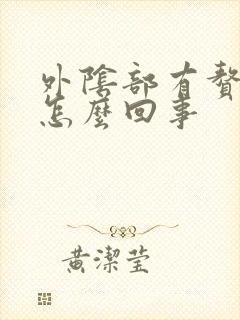 外陰部有贅
怎麼回事
黃潔莹